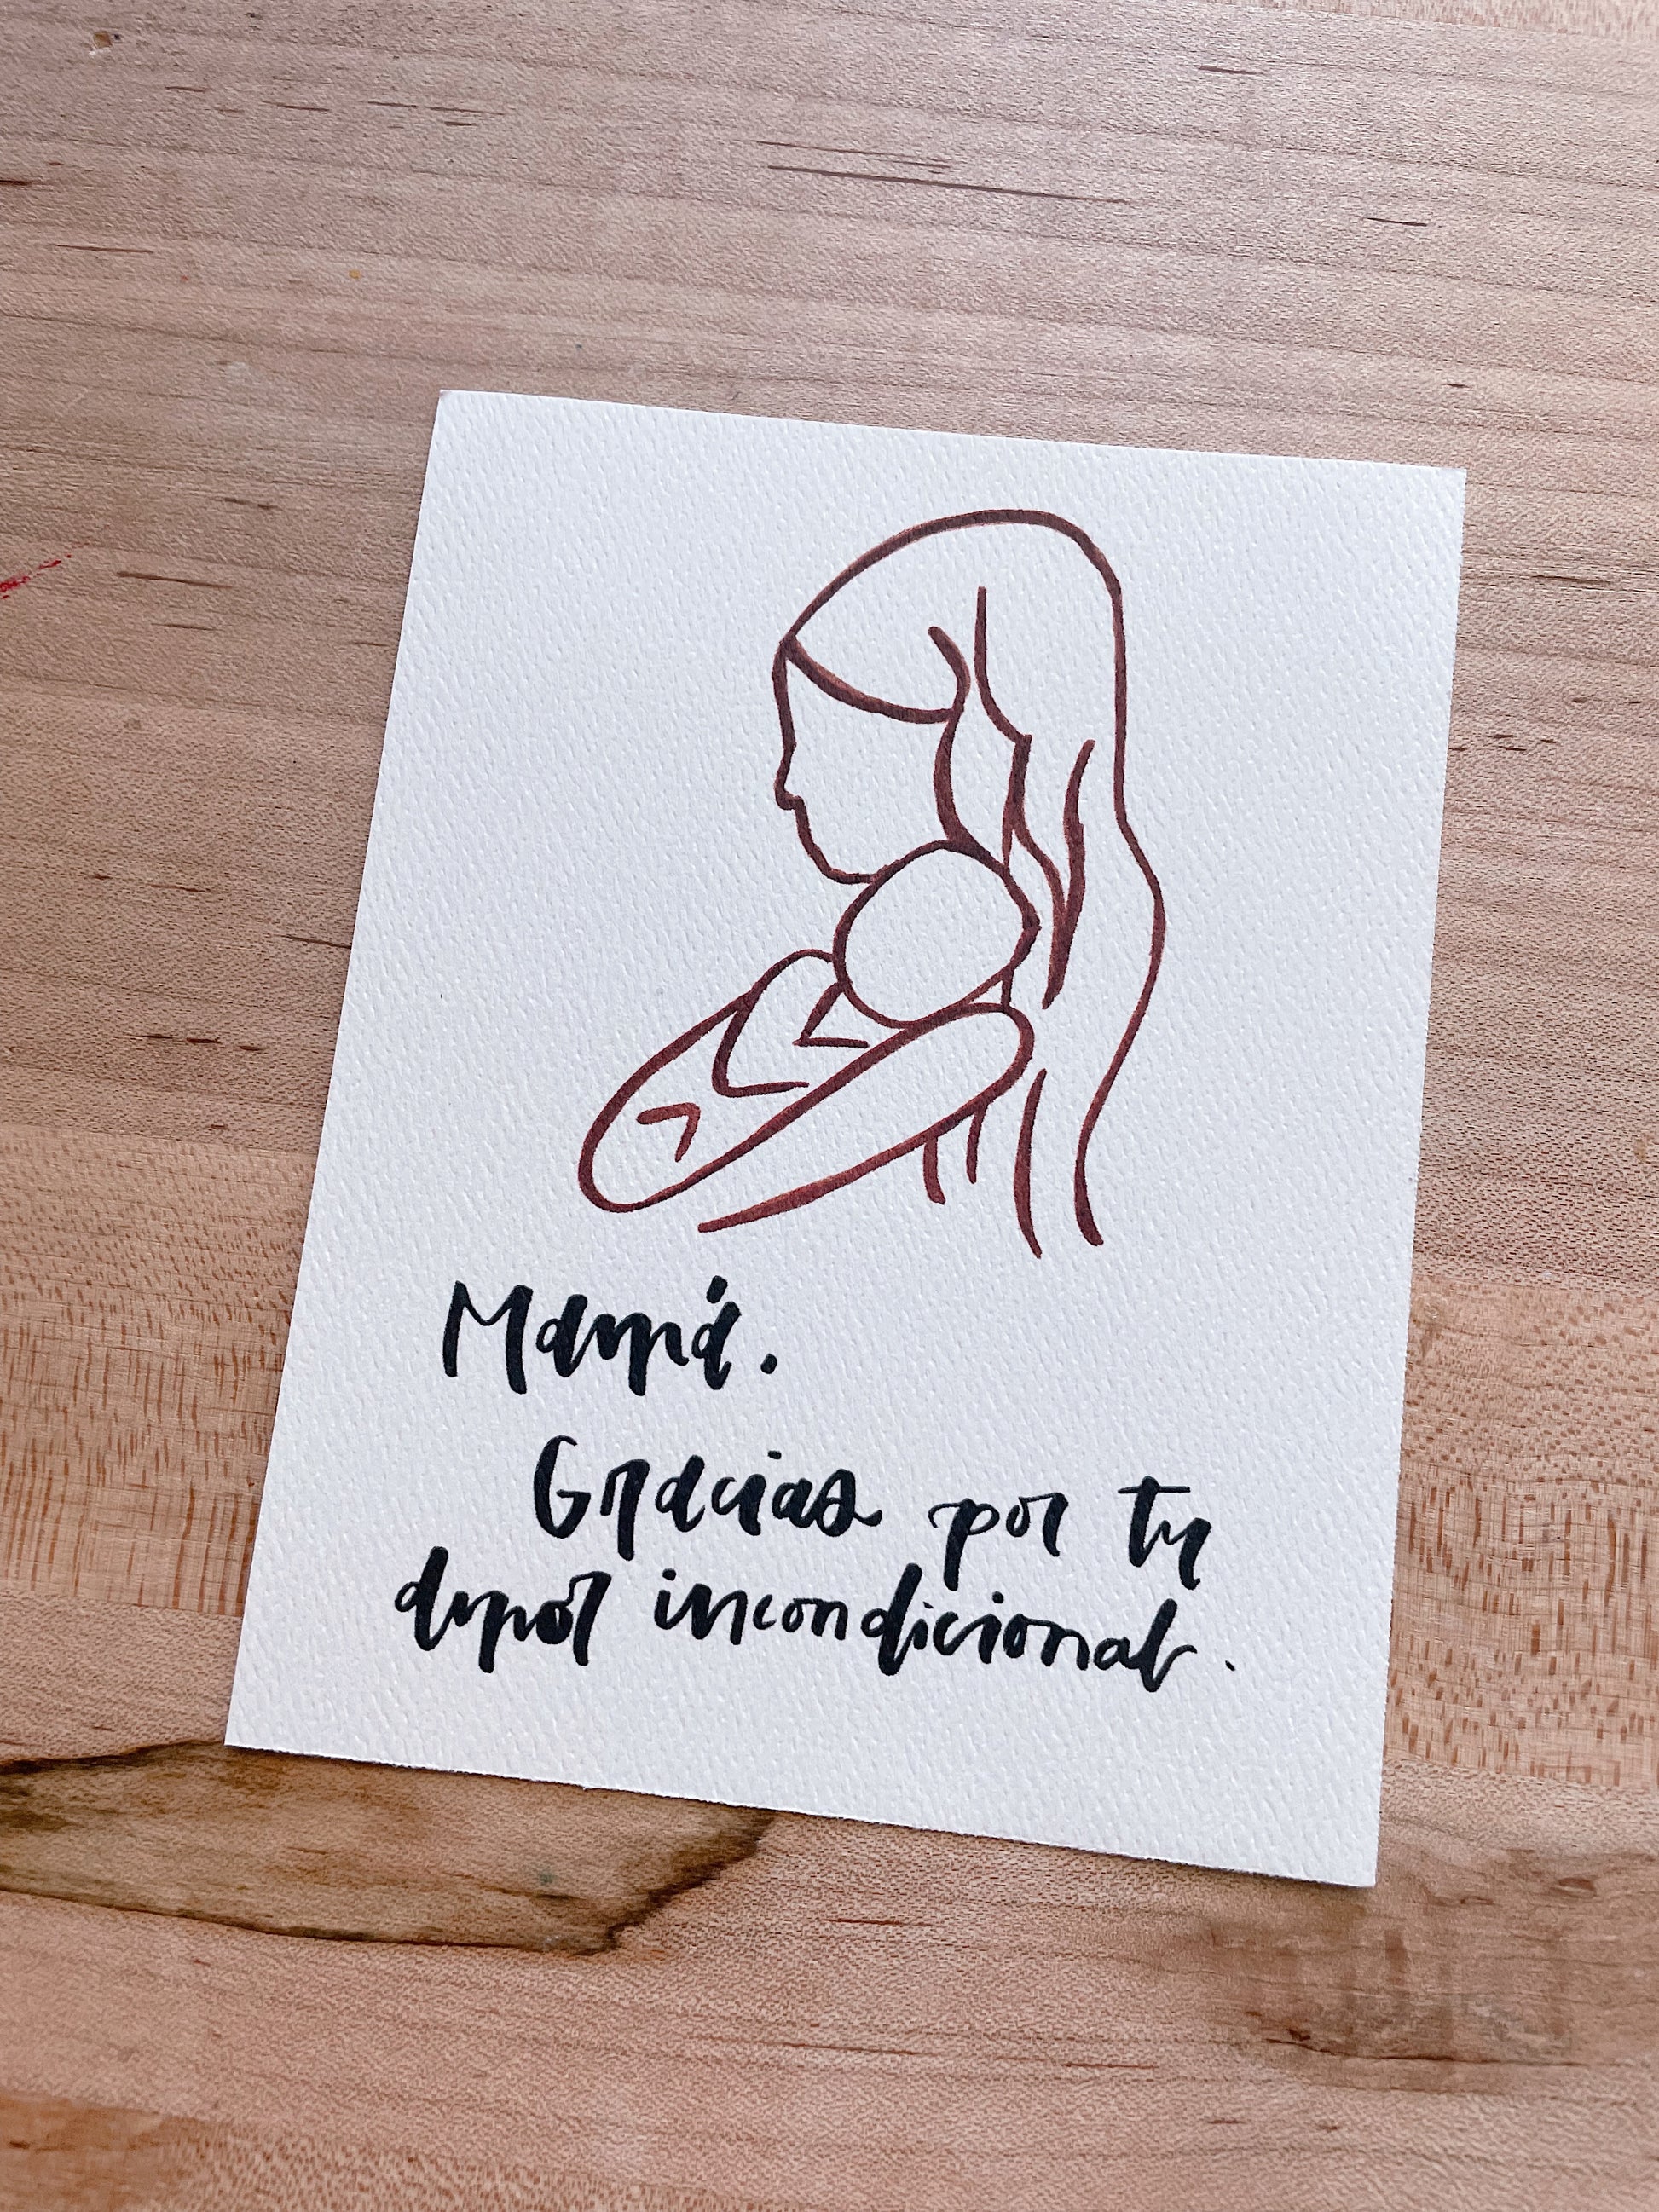 Mamá.
Gracias por tu
amor incondicional.